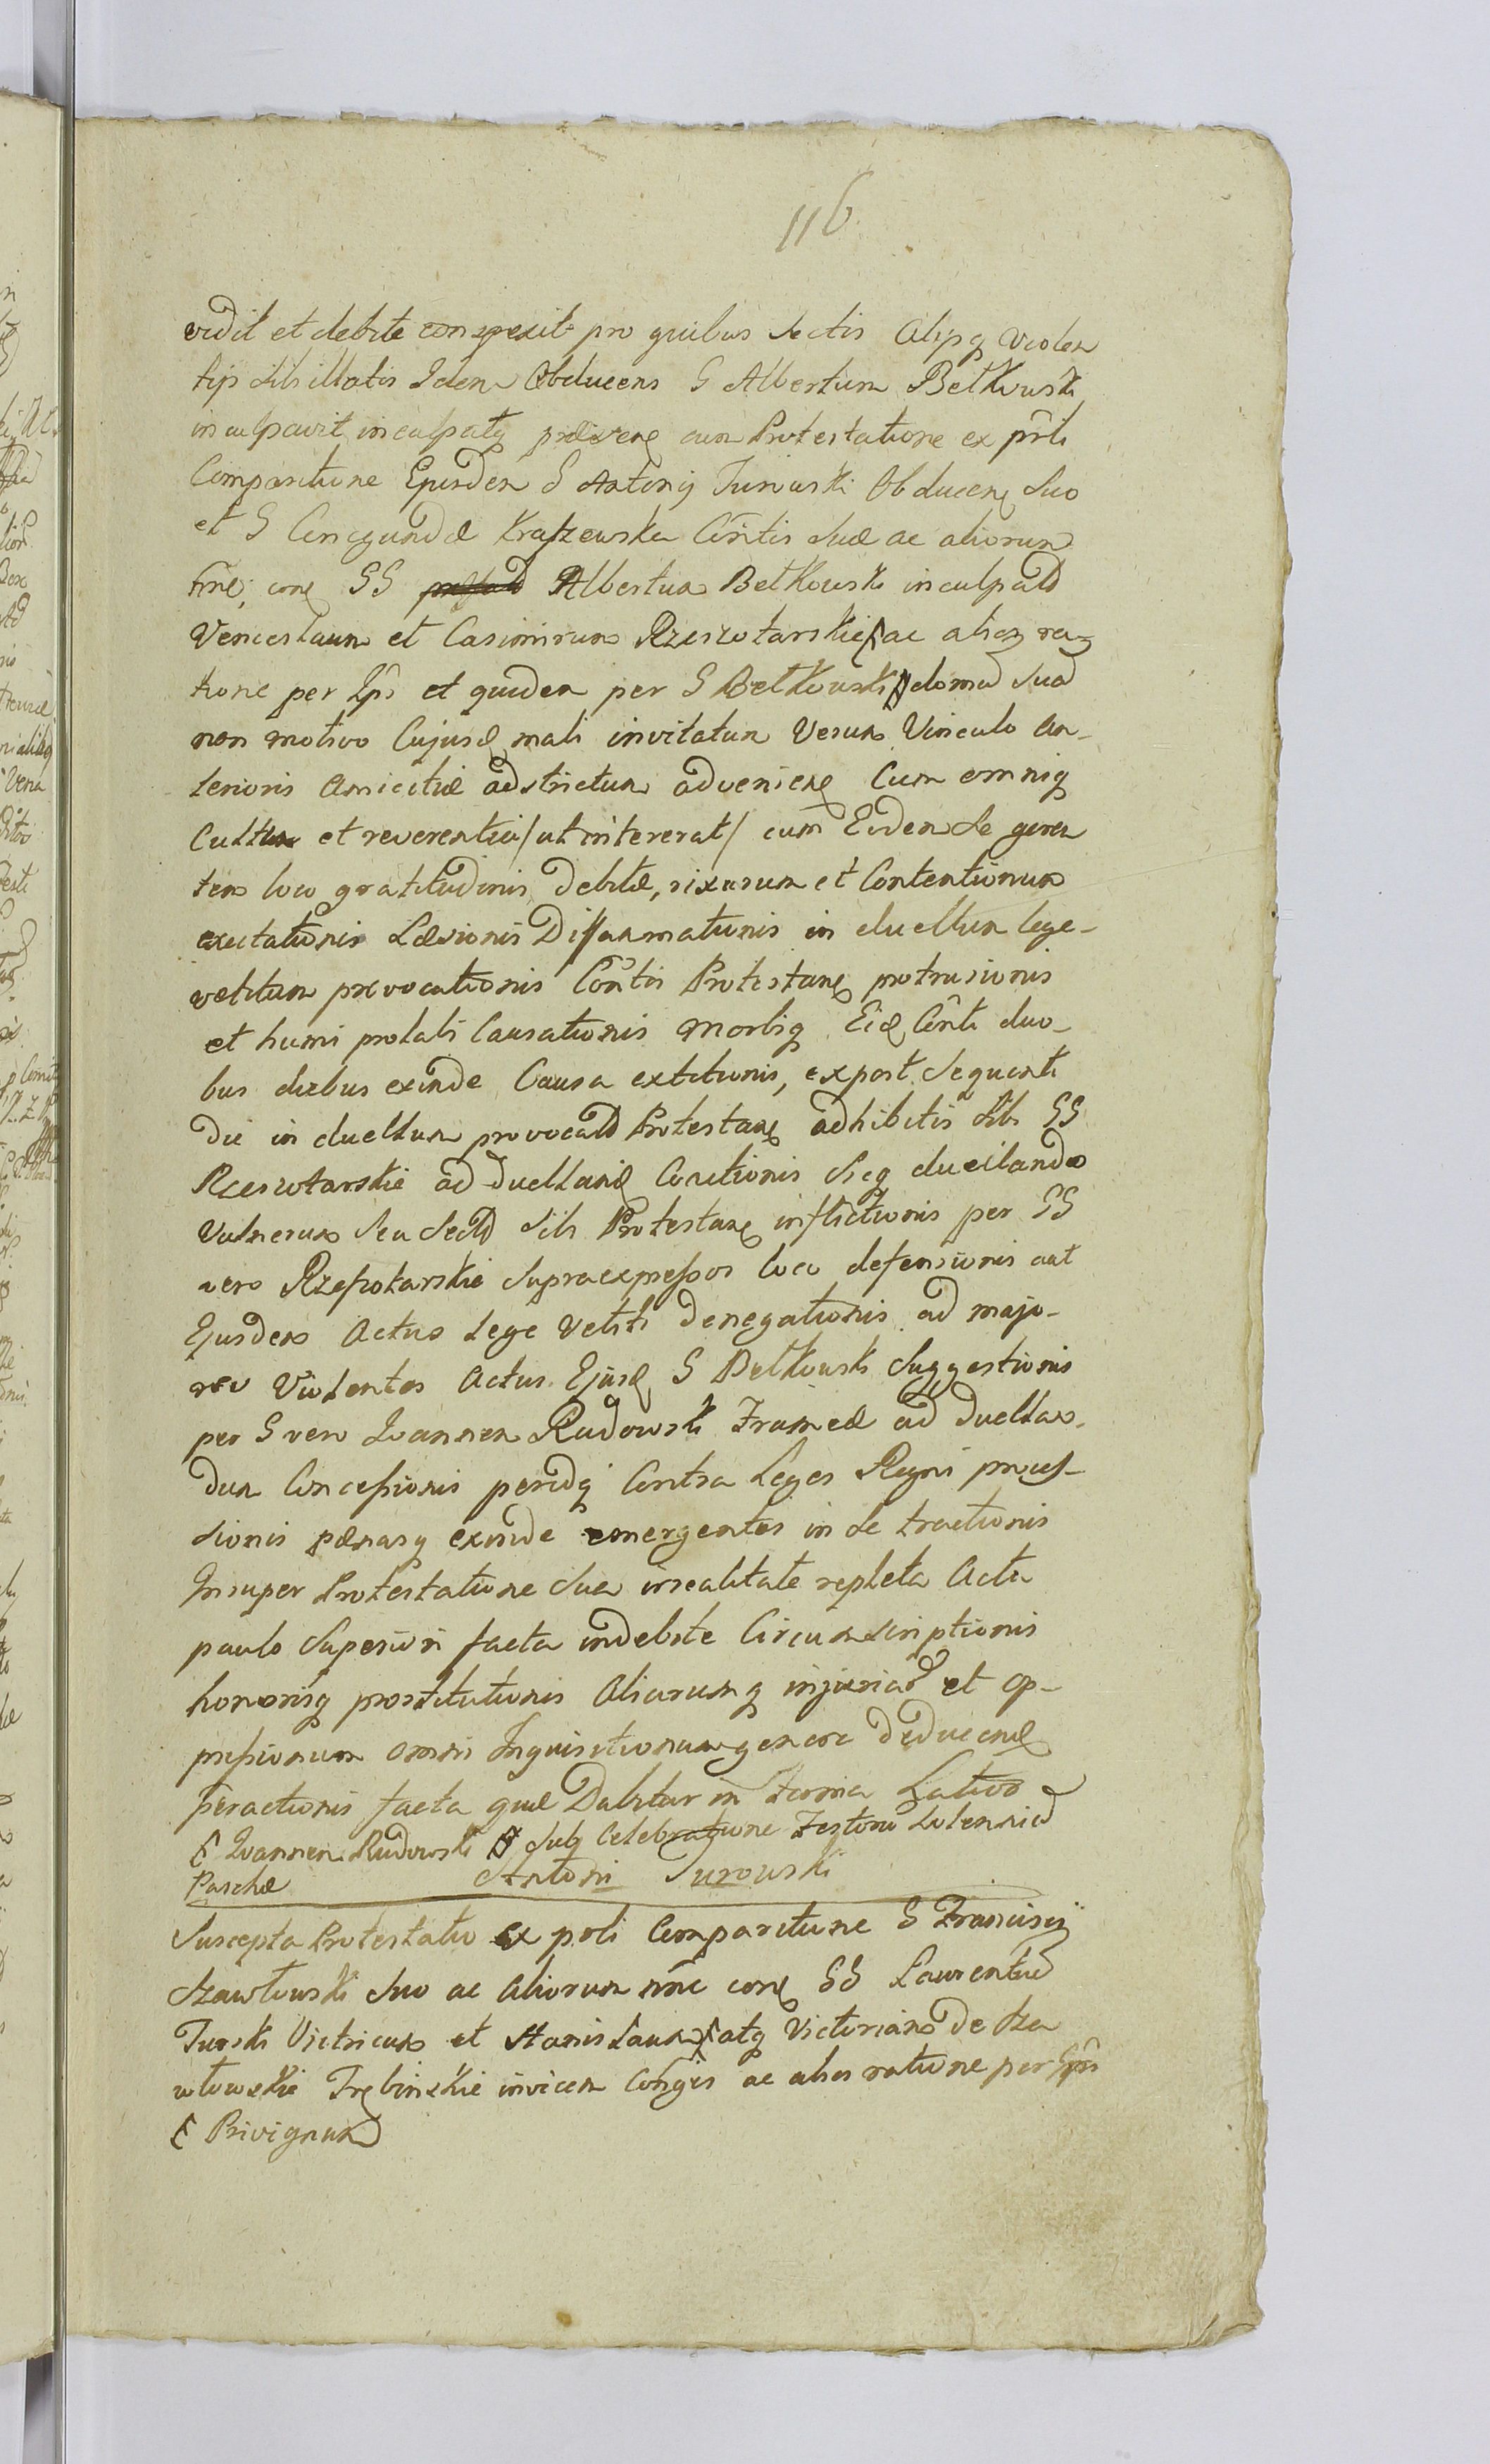 116
vidit et debite conspexit pro quibus Sectis Alijsq Violen
tijs Sibi illatis Idem Obducens G Albertum Betkowski
inculpavit inculpatq præivene cum Protestatione ex prli
Comparitione Ejusdem G Antonij Turowski Obducene Suo
et G Cunegundæ Kraszewska Contis Suæ ac aliorum
nne, cone GG Albertum Betkowski inculpatd
Venceslaum et Casimirum Rzeszotarskie ac alios ra
tione per Ipis et quidem per G Betkowski domo Sua
non motivo Cujusd mali invitatum Verum Vinculo An-
terioris Amicitiæ adstrictum adveniene Cum omniq
Cultu et reverentia / ut intererat / cum Eodem Se geren
tem loco gratitudinis debitæ, rixarum et Contentionum
excitationis Læsionis Diffamationis in duellum lege-
vetitum provocationis Contis Protestane protrusionis
et humi prolati Causationis morbiq Eid Conti duo-
bus diebus exinde Causa extitionis, ex post Sequenti
die in duellum provocatd Protestane adhibitis Sibi GG
Rzeszotarskie ad duelland Coactionis Sicq duellando
Vulnerum Seu Sectd Sibi Protestane inflictionis per GG
vero Rzeszotarskie Supraexpressos loco defensionis aut
Ejusdem Actus Lege Vetiti denegationis ad majo-
res Violentos Actus Ejusd G Betkowski Suggestionis
per G vero Ioannem Rudowski Frameæ ad duellan-
dum Concessionis peridq Contra Leges Regni proces-
sionis pænasq exinde emergentes in Se tractionis
Insuper Protestatione Sua irrealitate repleta Acta
paulo Superiori facta indebite Circumscriptionis
honorisq prostitutionis Aliarumq injuriad et op-
pressionum omni Inquisitionum genere deducend
peractionis facta quæ Dabitur in Forma Latiori
Ioannem Rudowski Subq Celebratione Festorum Solenniad
Paschæ Antoni Turowski
Suscepta Protestatio ex prli Comparitione G Francisci
Szawłowski Suo ac Aliorum nne cone GG Laurentid
Turski Victricum et Stanislaum atq Victorianum de Sza
włowskie Trębinskie invicem Congis ac alios ratione per Ipis
Privignum